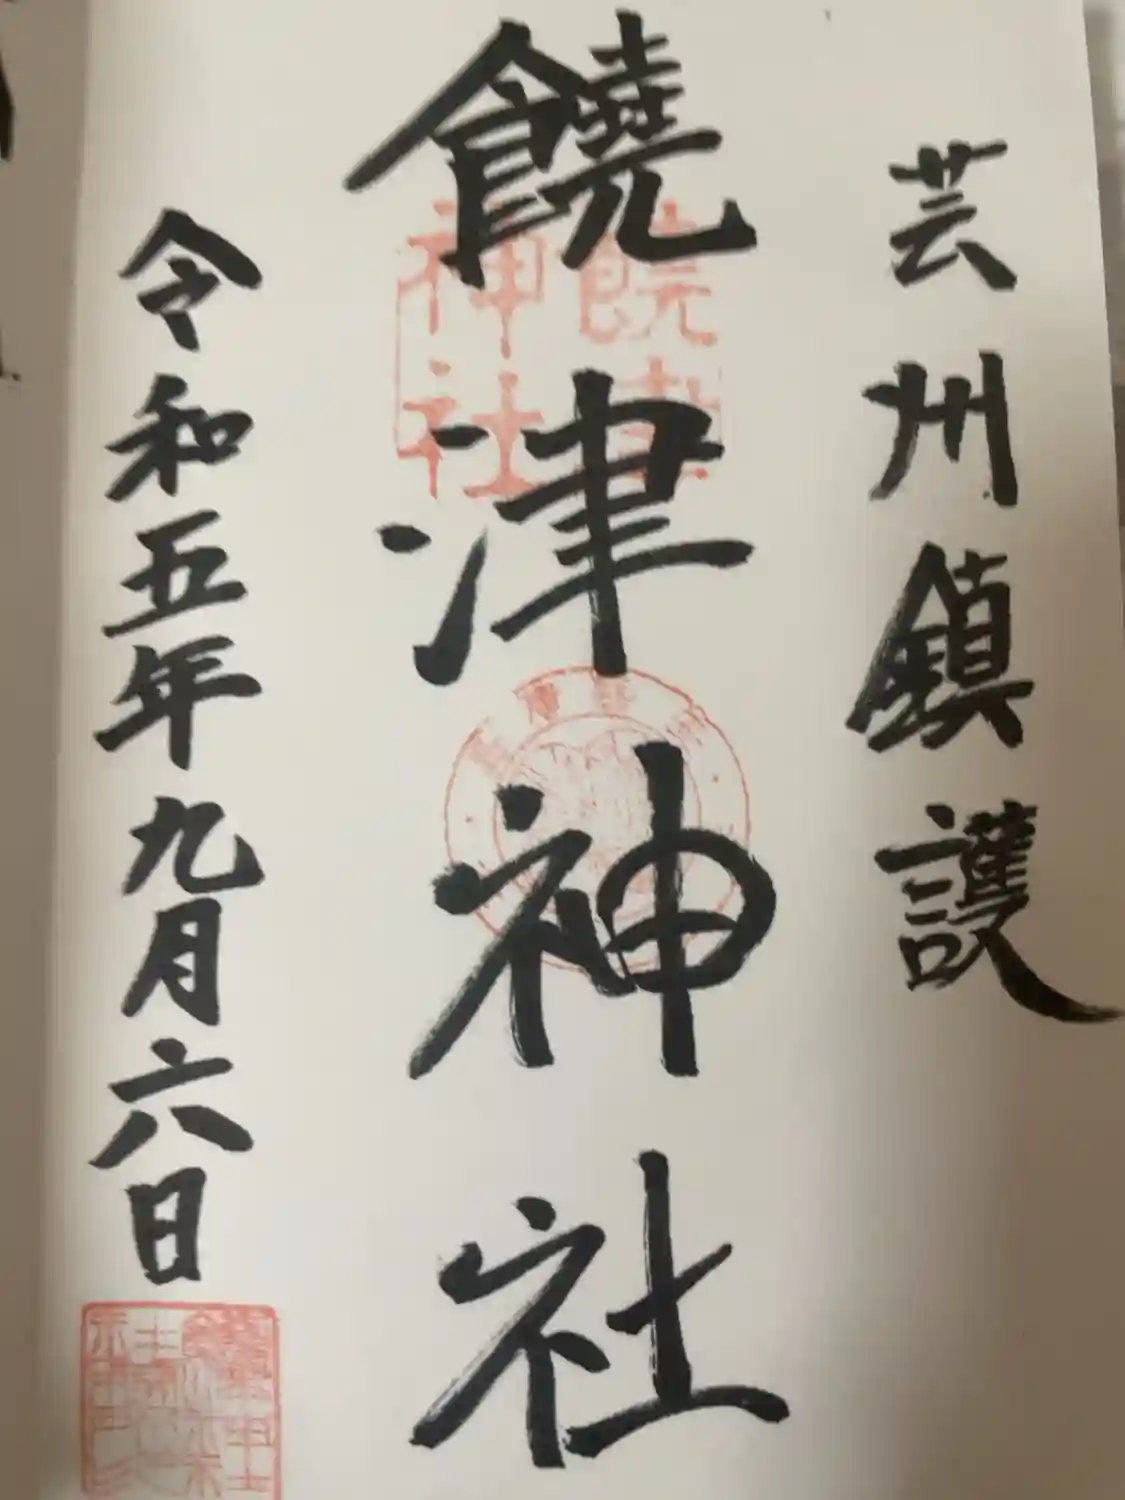 芸州鎮護
饒津神社
饒津神社
令和五年九月六日